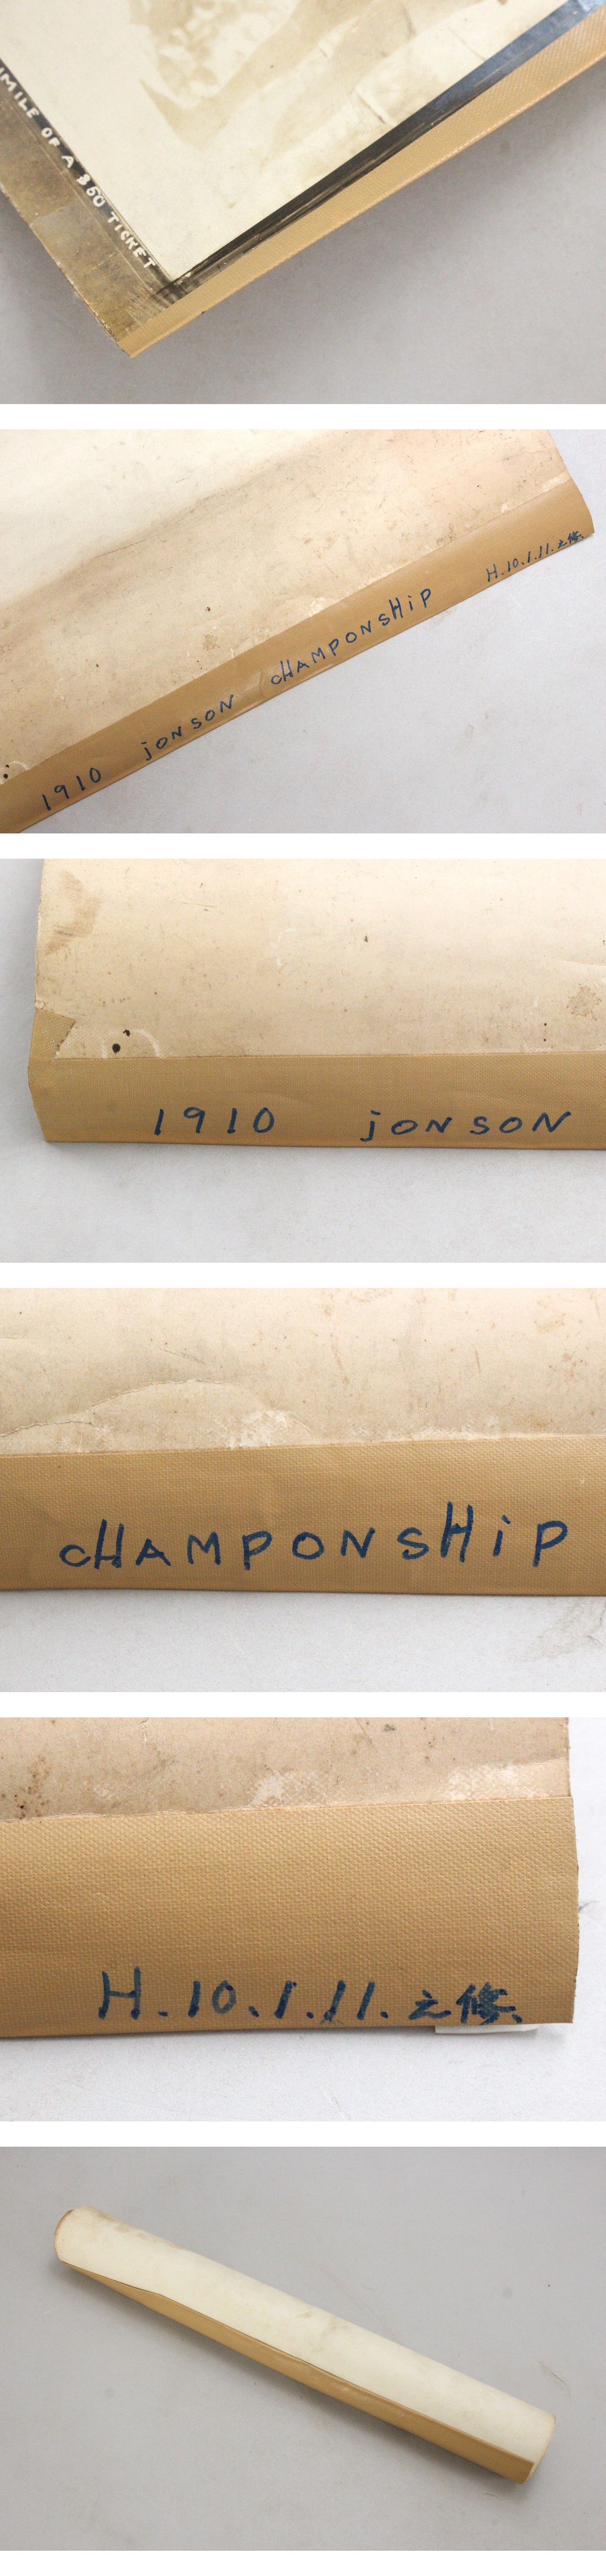 IMILE OF A $50 TICKET
1910 jONSON CHAMPONSHiP H.10.1.11.之修.
1910 jONSON
CHAMPONSHiP
H.10.1.11.之修.